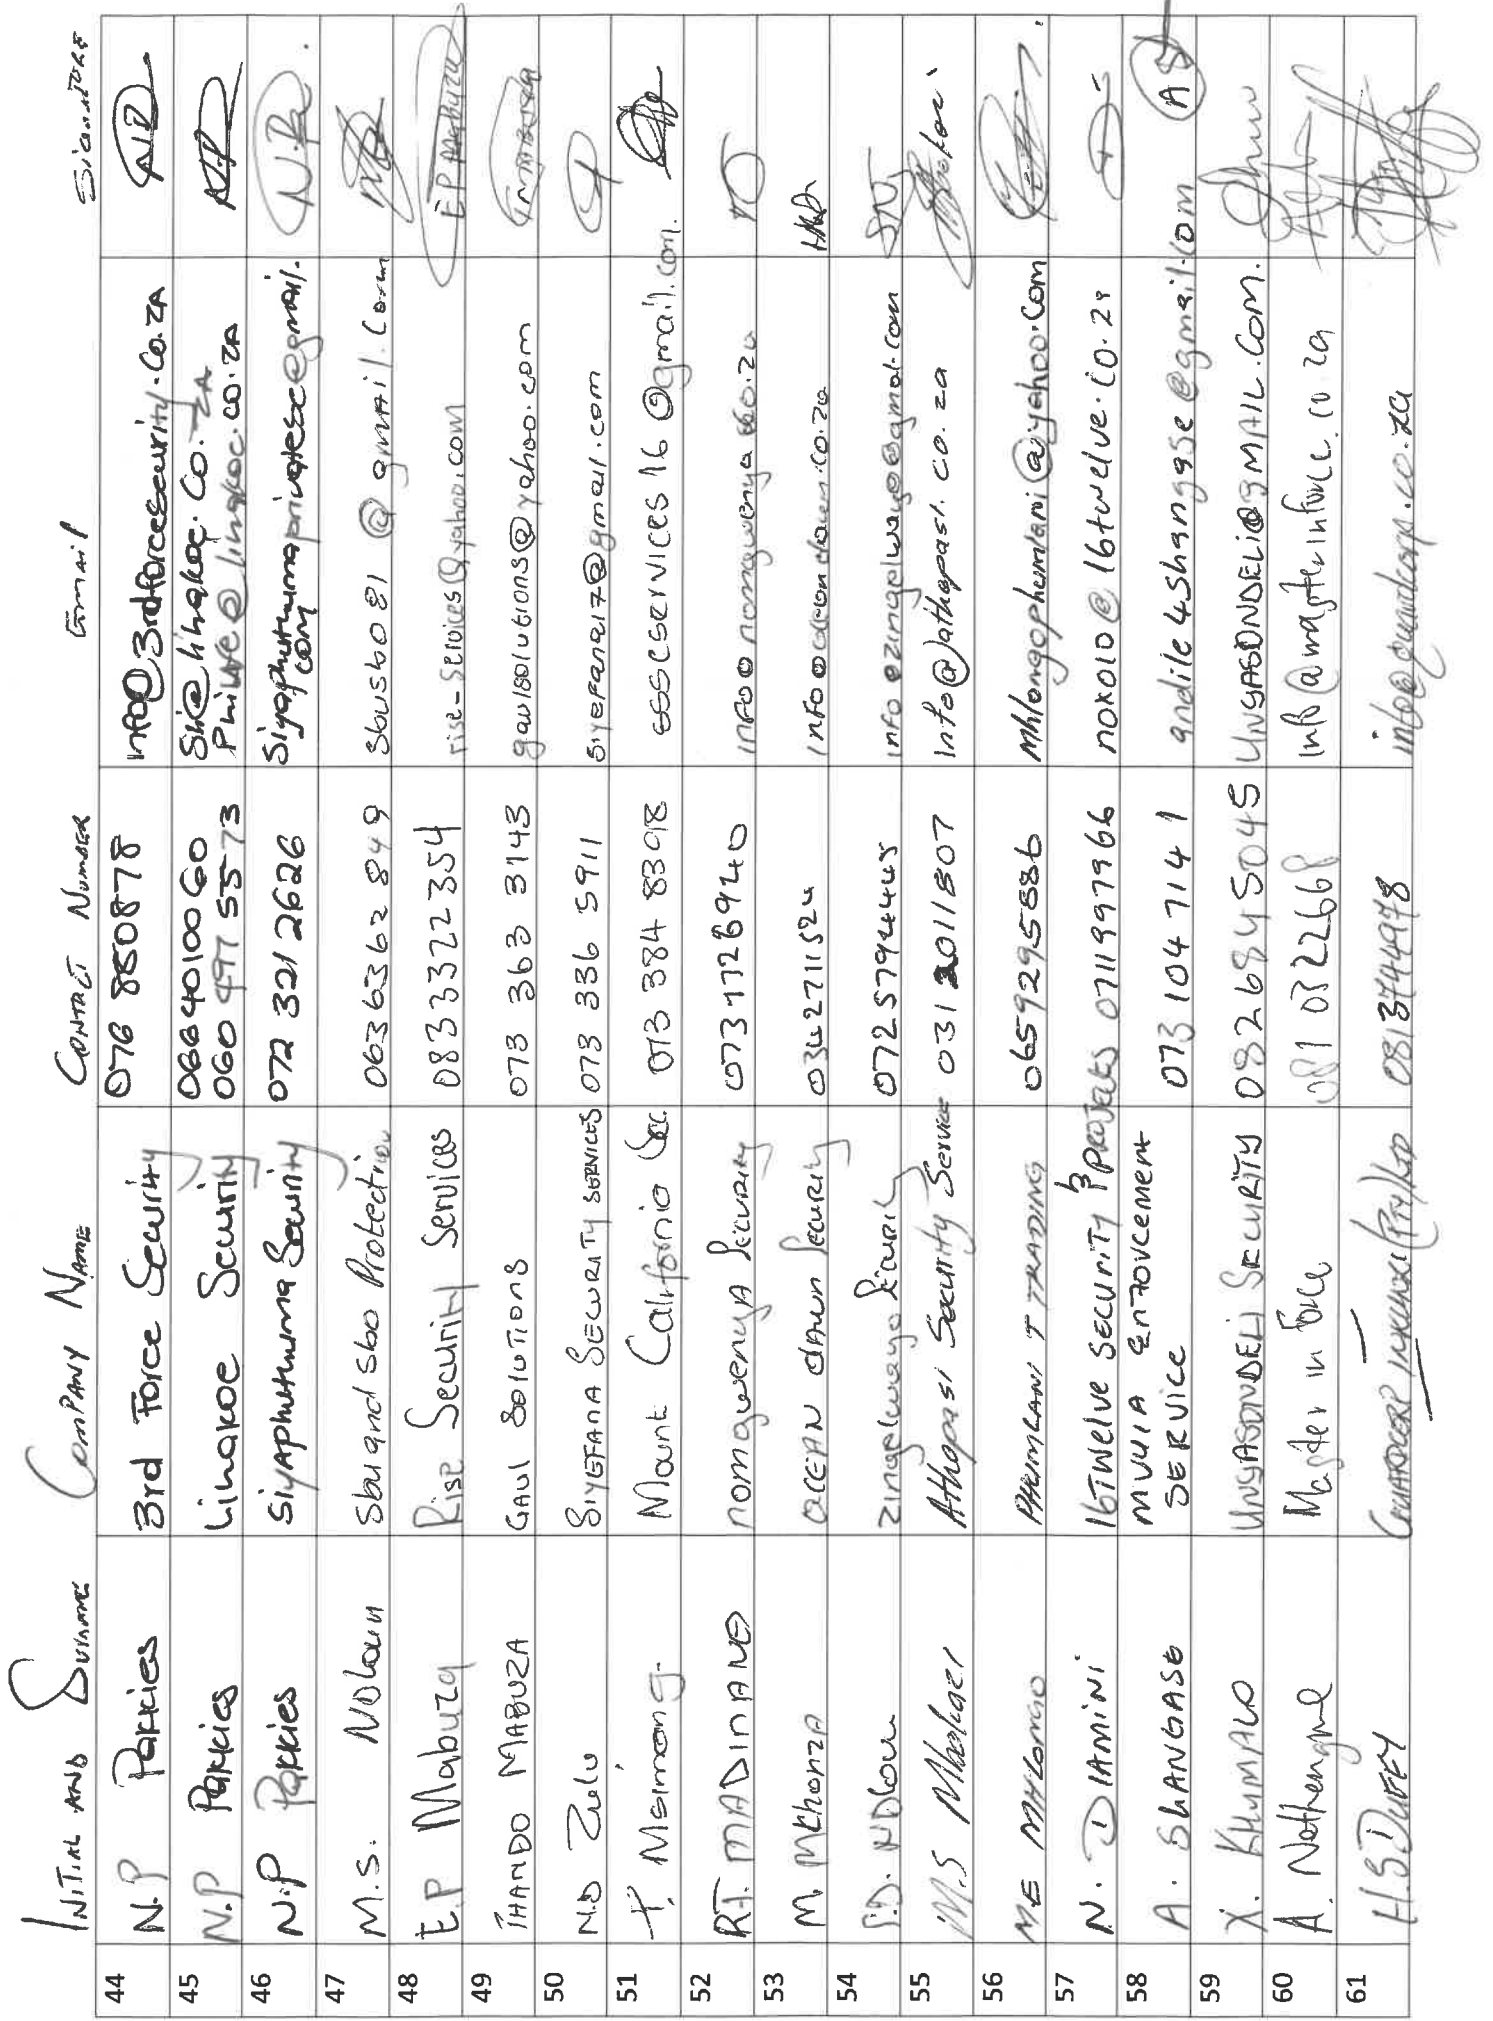 INITIAL AND SURNAME COMPANY NAME CONTACT NUMBER Email SIGNATURE
44 N.P Pakkies 3rd Force Security 076 8850878 info@3rdforcesecurity.co.ZA
45 N.P Pakkies Lihakoe Security 0664010060 Ski@lihakoe.co.ZA
060 497 5573 Philwe@lihakoe.co.ZA
46 N.P Pakkies SiyAphuthuma Security 072 321 2626 Siyaphuthumaprivatesec@gmail.
com N.P
47 M.S. Ndlovu Sbu and Sbo Protection 0636362849 Sbusbo81@gmail.com
48 E.P Mabuza Rise Security Services 0833322354 rise-services@yahoo.com EP Mabuza
49 THANDO MABUZA GAUL SOLUTIONS 073 363 3143 gaulsolutions@yahoo.com
50 N.D Zulu SIYEFANA SECURITY SERVICES 073 336 5911 siyefana17@gmail.com
51 T. Msimang Mount California Sec. 073 384 8398 essceservices16@gmail.com
52 R.T. MADINANE nomqwenya Security 0731726940 info@nomqwenya.co.za
53 M. Mchonza OCEAN dawn Security 0342271152
54 NDlovu Zingelwayo Security 0725794445 info@zingelwayo@gmal.com
55 M.S Mbokazi Athapasi Security Service 031 2011807 Info@athapasi.co.za
56 M.E MHLONGO PHUMLANI T TRADING 0659295886 Mhlongophumlani@yahoo.com
57 N. DLAMINI 16Twelve Security & Projects 0711997966 noxolo@16twelve.co.za
58 A. SHANGASE MVULA ENFORCEMENT
SERVICE 073 104 7141 andile4shangase@gmail.com AS
59 X. KHUMALO UNGASONDELI SECURITY 0826845045 UNGASONDELI@GMAIL.COM.
60 A. Nethengwe Master in Force 081 0322668 info@masterinforce.co.za
61 H.S DUFFY GUARDCORP (PTY)LTD 0813744978 info@guardcorp.co.za